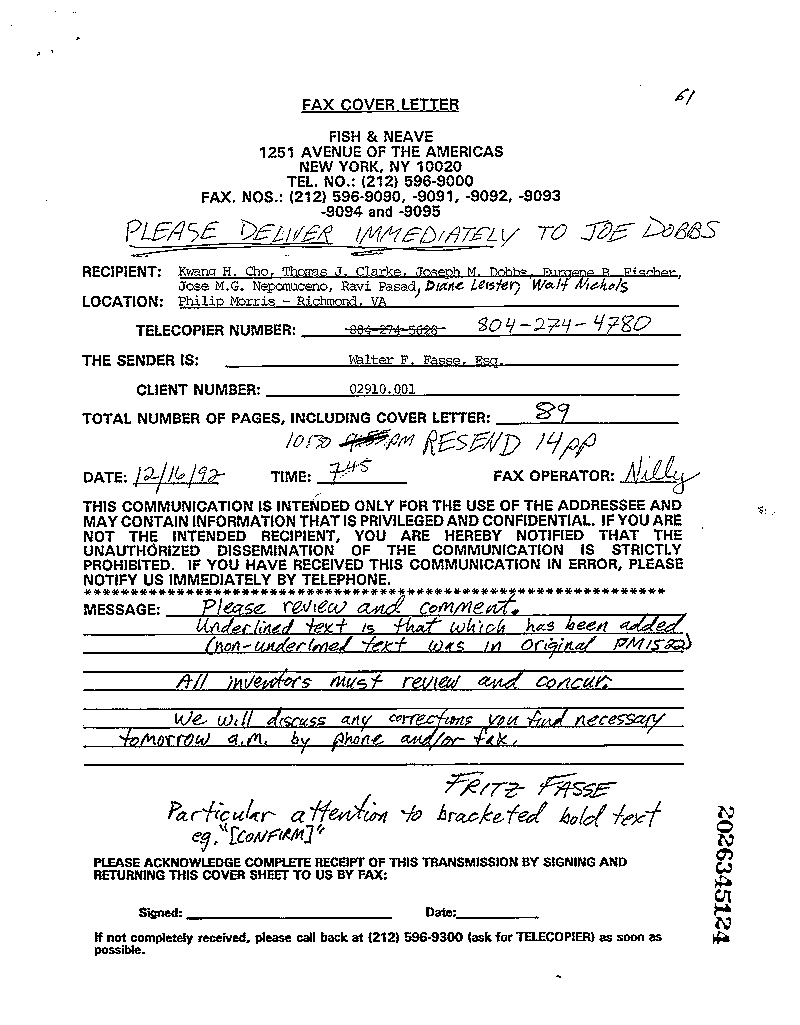 61
FAX COVER LETTER
FISH & NEAVE
1251 AVENUE OF THE AMERICAS
NEW YORK, NY 10020
TEL. NO.: (212) 596-9000
FAX. NOS.: (212) 596-9090, -9091, -9092, -9093
-9094 and -9095
PLEASE DELIVER IMMEDIATELY TO JOE DOBBS
RECIPIENT: Kwang H. Cho, Thomas J. Clarke, Joseph M. Dobbs, Eurgene B. Fischer,
Jose M.G. Nepomuceno, Ravi Pasad, Diane Leister, Walt Nichols
LOCATION: Philip Morris - Richmond, VA
TELECOPIER NUMBER: 804-274-5628 804-274-4780
THE SENDER IS: Walter F. Fasse, Esq.
CLIENT NUMBER: 02910.001
TOTAL NUMBER OF PAGES, INCLUDING COVER LETTER: 89
10:30 PM RESEND 14 pp
DATE: 12/16/92 TIME: 7:45 FAX OPERATOR: Nilly
THIS COMMUNICATION IS INTENDED ONLY FOR THE USE OF THE ADDRESSEE AND
MAY CONTAIN INFORMATION THAT IS PRIVILEGED AND CONFIDENTIAL. IF YOU ARE
NOT THE INTENDED RECIPIENT, YOU ARE HEREBY NOTIFIED THAT THE
UNAUTHORIZED DISSEMINATION OF THE COMMUNICATION IS STRICTLY
PROHIBITED. IF YOU HAVE RECEIVED THIS COMMUNICATION IN ERROR, PLEASE
NOTIFY US IMMEDIATELY BY TELEPHONE.
*****************************************************************
MESSAGE: Please review and comment.
Underlined text is that which has been added
(non-underlined text was in original PM1522)
All inventors must review and concur.
We will discuss any corrections you find necessary
tomorrow a.m. by phone and/or fax.
FRITZ FASSE
Particular attention to bracketed bold text
eg. "[CONFIRM]"
PLEASE ACKNOWLEDGE COMPLETE RECEIPT OF THIS TRANSMISSION BY SIGNING AND
RETURNING THIS COVER SHEET TO US BY FAX:
Signed: Date:
If not completely received, please call back at (212) 596-9300 (ask for TELECOPIER) as soon as
possible.
2026345124